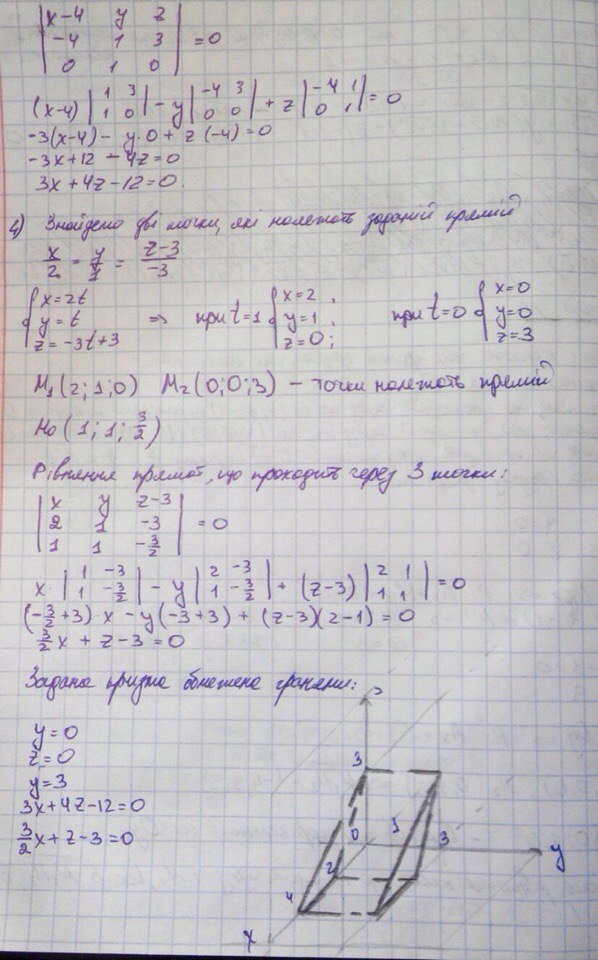 |x-4 y z|
|-4 1 3| = 0
|0 1 0|
(x-4) |1 3; 1 0| - y |-4 3; 0 0| + z |-4 1; 0 1| = 0
-3(x-4) - y·0 + z(-4) = 0
-3x+12 - 4z = 0
3x+4z-12=0.
4) Знайдемо дві точки, які належать заданій прямій
x/2 = y/1 = (z-3)/-3
{x=2t
{y=t
{z=-3t+3
=> при t=1
{x=2,
{y=1,
{z=0;
при t=0
{x=0
{y=0
{z=3
M₁(2;1;0) M₂(0;0;3) – точки належать прямій
M₀(1;1;3/2)
Рівняння прямої, що проходить через 3 точки:
|x y z-3|
|2 1 -3| = 0
|1 1 -3/2|
x·|1 -3; 1 -3/2| - y |2 -3; 1 -3/2| + (z-3) |2 1; 1 1| = 0
(-3/2+3)·x - y(-3+3) + (z-3)(2-1) = 0
3/2x + z-3=0
Задана призма обмежена гранями:
y=0
z=0
y=3
3x+4z-12=0
3/2x+z-3=0
z
3
0
1
3
y
2
4
x